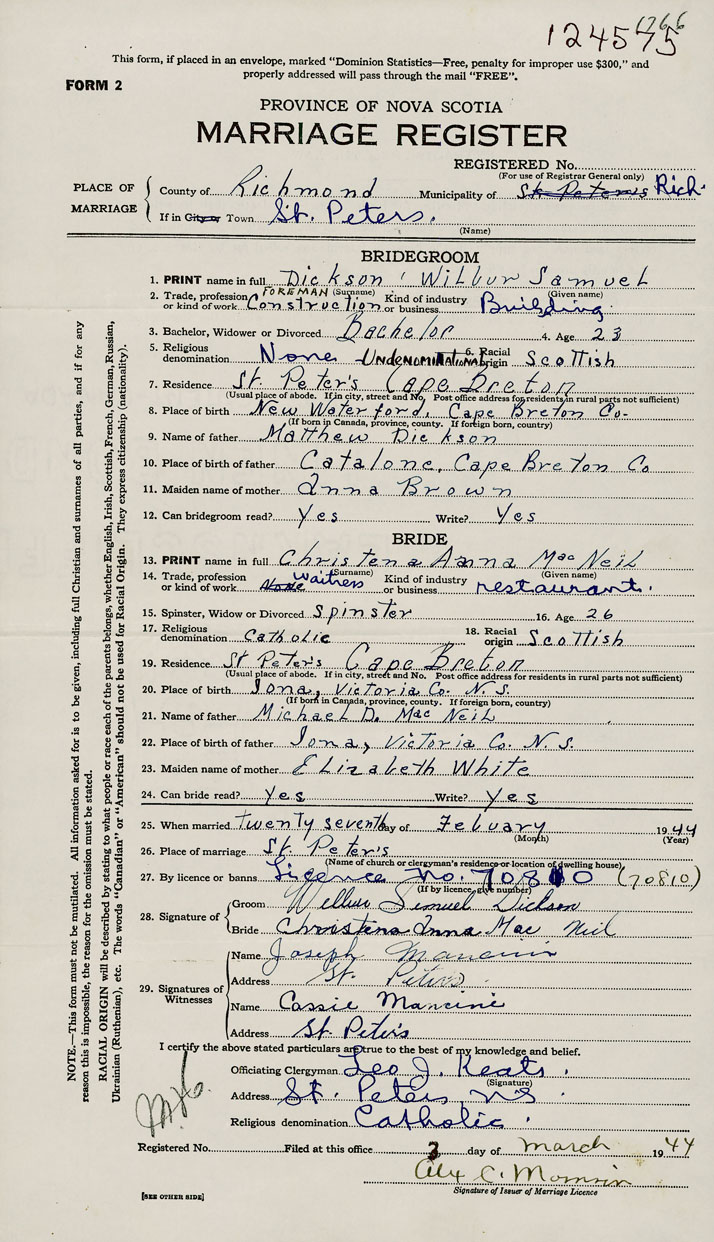 1766
124575
This form, if placed in an envelope, marked "Dominion Statistics—Free, penalty for improper use $300," and
properly addressed will pass through the mail "FREE".
FORM 2
PROVINCE OF NOVA SCOTIA
MARRIAGE REGISTER
REGISTERED No.
(For use of Registrar General only)
PLACE OF MARRIAGE
County of Richmond Municipality of St. Peters Rich.
If in City or Town St. Peters.
(Name)
BRIDEGROOM
1. PRINT name in full Dickson, Wilbur Samuel
(Surname) (Given name)
2. Trade, profession or kind of work FOREMAN Construction Kind of industry or business Building.
3. Bachelor, Widower or Divorced Bachelor 4. Age 23
5. Religious denomination None UNDENOMINATIONAL 6. Racial origin Scottish
7. Residence St. Peter's Cape Breton
(Usual place of abode. If in city, street and No. Post office address for residents in rural parts not sufficient)
8. Place of birth New Waterford, Cape Breton Co.
(If born in Canada, province, county. If foreign born, country)
9. Name of father Matthew Dickson
10. Place of birth of father Catalone, Cape Breton Co
11. Maiden name of mother Anna Brown
12. Can bridegroom read? Yes Write? Yes
BRIDE
13. PRINT name in full Christena Anna MacNeil
(Surname) (Given name)
14. Trade, profession or kind of work None waitress Kind of industry or business restaurant.
15. Spinster, Widow or Divorced Spinster 16. Age 26
17. Religious denomination Catholic 18. Racial origin Scottish
19. Residence St Peter's Cape Breton
(Usual place of abode. If in city, street and No. Post office address for residents in rural parts not sufficient)
20. Place of birth Iona, Victoria Co. N.S.
(If born in Canada, province, county. If foreign born, country)
21. Name of father Michael D. Mac Neil
22. Place of birth of father Iona, Victoria Co. N.S.
23. Maiden name of mother Elizabeth White
24. Can bride read? Yes Write? Yes
25. When married twenty seventh day of Febuary 1944
(Month) (Year)
26. Place of marriage St. Peter's
(Name of church or clergyman's residence or location of dwelling house)
27. By licence or banns Licence No. 70810 (70810)
(If by licence, give number)
28. Signature of
Groom Wilbur Samuel Dickson
Bride Christena Anna Mac Neil
29. Signatures of Witnesses
Name Joseph Mancini
Address St. Peters
Name Cassie Mancini
Address St. Peter's
I certify the above stated particulars are true to the best of my knowledge and belief.
Officiating Clergyman Leo J. Keats.
(Signature)
Address St. Peters, N S
Religious denomination Catholic.
Registered No. Filed at this office 3 day of March 1944
Alex C. Morrison
Signature of Issuer of Marriage Licence
[SEE OTHER SIDE]
NOTE.—This form must not be mutilated. All information asked for is to be given, including full Christian and surnames of all parties, and if for any
reason this is impossible, the reason for the omission must be stated.
RACIAL ORIGIN will be described by stating to what people or race each of the parents belongs, whether English, Irish, Scottish, French, German, Russian,
Ukrainian (Ruthenian), etc. The words "Canadian" or "American" should not be used for Racial Origin. They express citizenship (nationality).